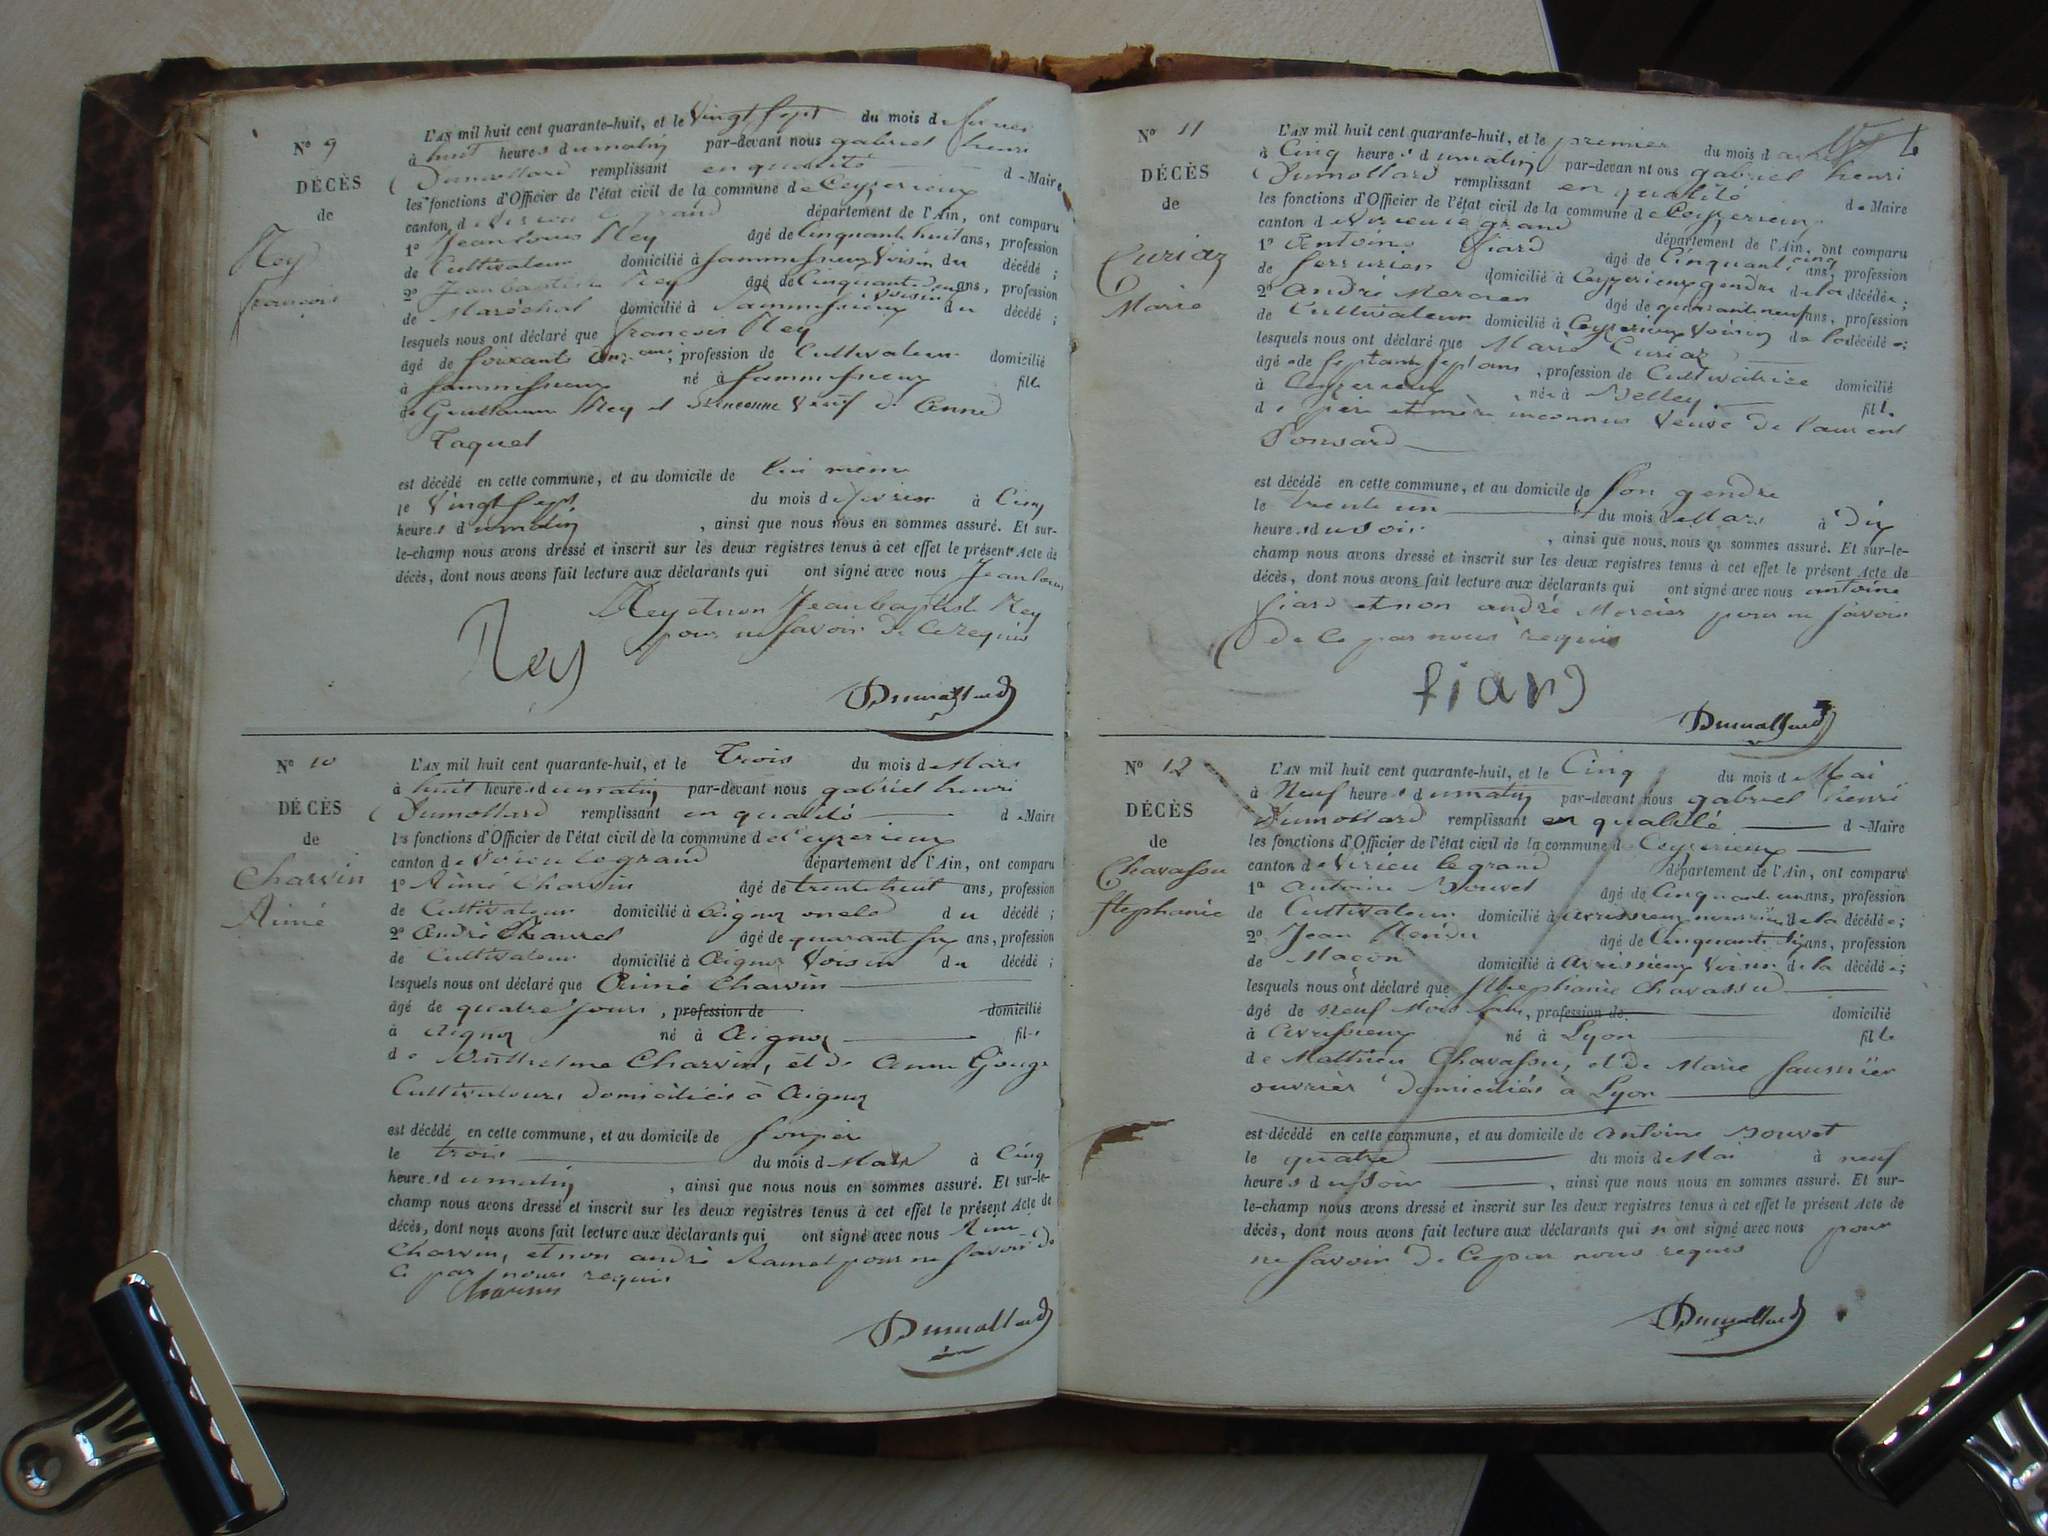 N° 9
DÉCÈS
de
Rey
françois
L'AN mil huit cent quarante-huit, et le Vingt sept du mois de fevrier
à huit heures du matin par-devant nous gabriel henri
Dumollard remplissant en qualité de Maire
les fonctions d'Officier de l'état civil de la commune de Ceyzerieux
canton de Virieu le grand département de l'Ain, ont comparu
1° Jean louis Rey âgé de Cinquante huit ans, profession
de Cultivateur domicilié à Voisin du décédé ;
2° Jean baptiste Rey âgé de Cinquante ans, profession
de Maréchal domicilié à Voisin du décédé ;
lesquels nous ont déclaré que françois Rey
âgé de soixante onze ans, profession de Cultivateur domicilié
à né à fils
de Guillaume Rey et inconnue Veuf de Anne
Taquet
est décédé en cette commune, et au domicile de lui même
le Vingt sept du mois de fevrier à Cinq
heures du matin, ainsi que nous nous en sommes assuré. Et sur-
le-champ nous avons dressé et inscrit sur les deux registres tenus à cet effet le présent Acte de
décès, dont nous avons fait lecture aux déclarants qui ont signé avec nous Jean louis
Rey et non Jean baptiste Rey
pour ne savoir de ce requis
Rey
Dumollard
N° 10
DÉCÈS
de
Charvin
Aimé
L'AN mil huit cent quarante-huit, et le Trois du mois de Mars
à huit heures du matin par-devant nous gabriel henri
Dumollard remplissant en qualité de Maire
les fonctions d'Officier de l'état civil de la commune de Ceyzerieux
canton de Virieu le grand département de l'Ain, ont comparu
1° Aimé Charvin âgé de trente huit ans, profession
de Cultivateur domicilié à Aignoz oncle du décédé ;
2° André âgé de quarante six ans, profession
de Cultivateur domicilié à Aignoz Voisin du décédé ;
lesquels nous ont déclaré que Aimé Charvin
âgé de quatre jours, profession de domicilié
à Aignoz né à Aignoz fils
de Anthelme Charvin, et de Anne Gouge
Cultivateurs domiciliés à Aignoz
est décédé en cette commune, et au domicile de son père
le trois du mois de Mars à Cinq
heures du matin, ainsi que nous nous en sommes assuré. Et sur-le-
champ nous avons dressé et inscrit sur les deux registres tenus à cet effet le présent Acte de
décès, dont nous avons fait lecture aux déclarants qui ont signé avec nous Aimé
Charvin, et non andré Ramel pour ne savoir de
ce par nous requis
Charvin
Dumollard
N° 11
DÉCÈS
de
Curiaz
Marie
L'AN mil huit cent quarante-huit, et le premier du mois d avril
à Cinq heures du matin par-devant nous gabriel henri
Dumollard remplissant en qualité de Maire
les fonctions d'Officier de l'état civil de la commune de Ceyzerieux
canton de Virieu le grand département de l'Ain, ont comparu
1° Antoine fiard âgé de Cinquante cinq ans, profession
de serrurier domicilié à Ceyzerieux gendre de la décédée ;
2° André Mercier âgé de quarante neuf ans, profession
de Cultivateur domicilié à Ceyzerieux Voisin de la décédée ;
lesquels nous ont déclaré que Marie Curiaz
âgée de septante sept ans, profession de Cultivatrice domicilié
à Ceyzerieux née à Belley fille
de père et mère inconnus Veuve de laurent
Ponsard
est décédé en cette commune, et au domicile de son gendre
le trente un du mois de Mars à Dix
heures du soir, ainsi que nous nous en sommes assuré. Et sur-le-
champ nous avons dressé et inscrit sur les deux registres tenus à cet effet le présent Acte de
décès, dont nous avons fait lecture aux déclarants qui ont signé avec nous antoine
fiard et non andré Mercier pour ne savoir
de ce par nous requis
fiard
Dumollard
N° 12
DÉCÈS
de
Chavassu
stephanie
L'AN mil huit cent quarante-huit, et le Cinq du mois de Mai
à Neuf heures du matin par-devant nous gabriel henri
Dumollard remplissant en qualité de Maire
les fonctions d'Officier de l'état civil de la commune de Ceyzerieux
canton de Virieu le grand département de l'Ain, ont comparu
1° Antoine Bouvet âgé de Cinquante un ans, profession
de Cultivateur domicilié à avrissieux de la décédée ;
2° Jean âgé de Cinquante six ans, profession
de Maçon domicilié à avrissieux Voisin de la décédée ;
lesquels nous ont déclaré que Stephanie Chavassu
âgé de Neuf Mois, profession de domicilié
à Avrissieux né à Lyon fille
de Mathieu Chavassu, et de Marie saunier
ouvrier domiciliés à Lyon
est décédé en cette commune, et au domicile de Antoine Bouvet
le quatre du mois de Mai à neuf
heures du soir, ainsi que nous nous en sommes assuré. Et sur-
le-champ nous avons dressé et inscrit sur les deux registres tenus à cet effet le présent Acte de
décès, dont nous avons fait lecture aux déclarants qui n ont signé avec nous pour
ne savoir de ce par nous requis
Dumollard